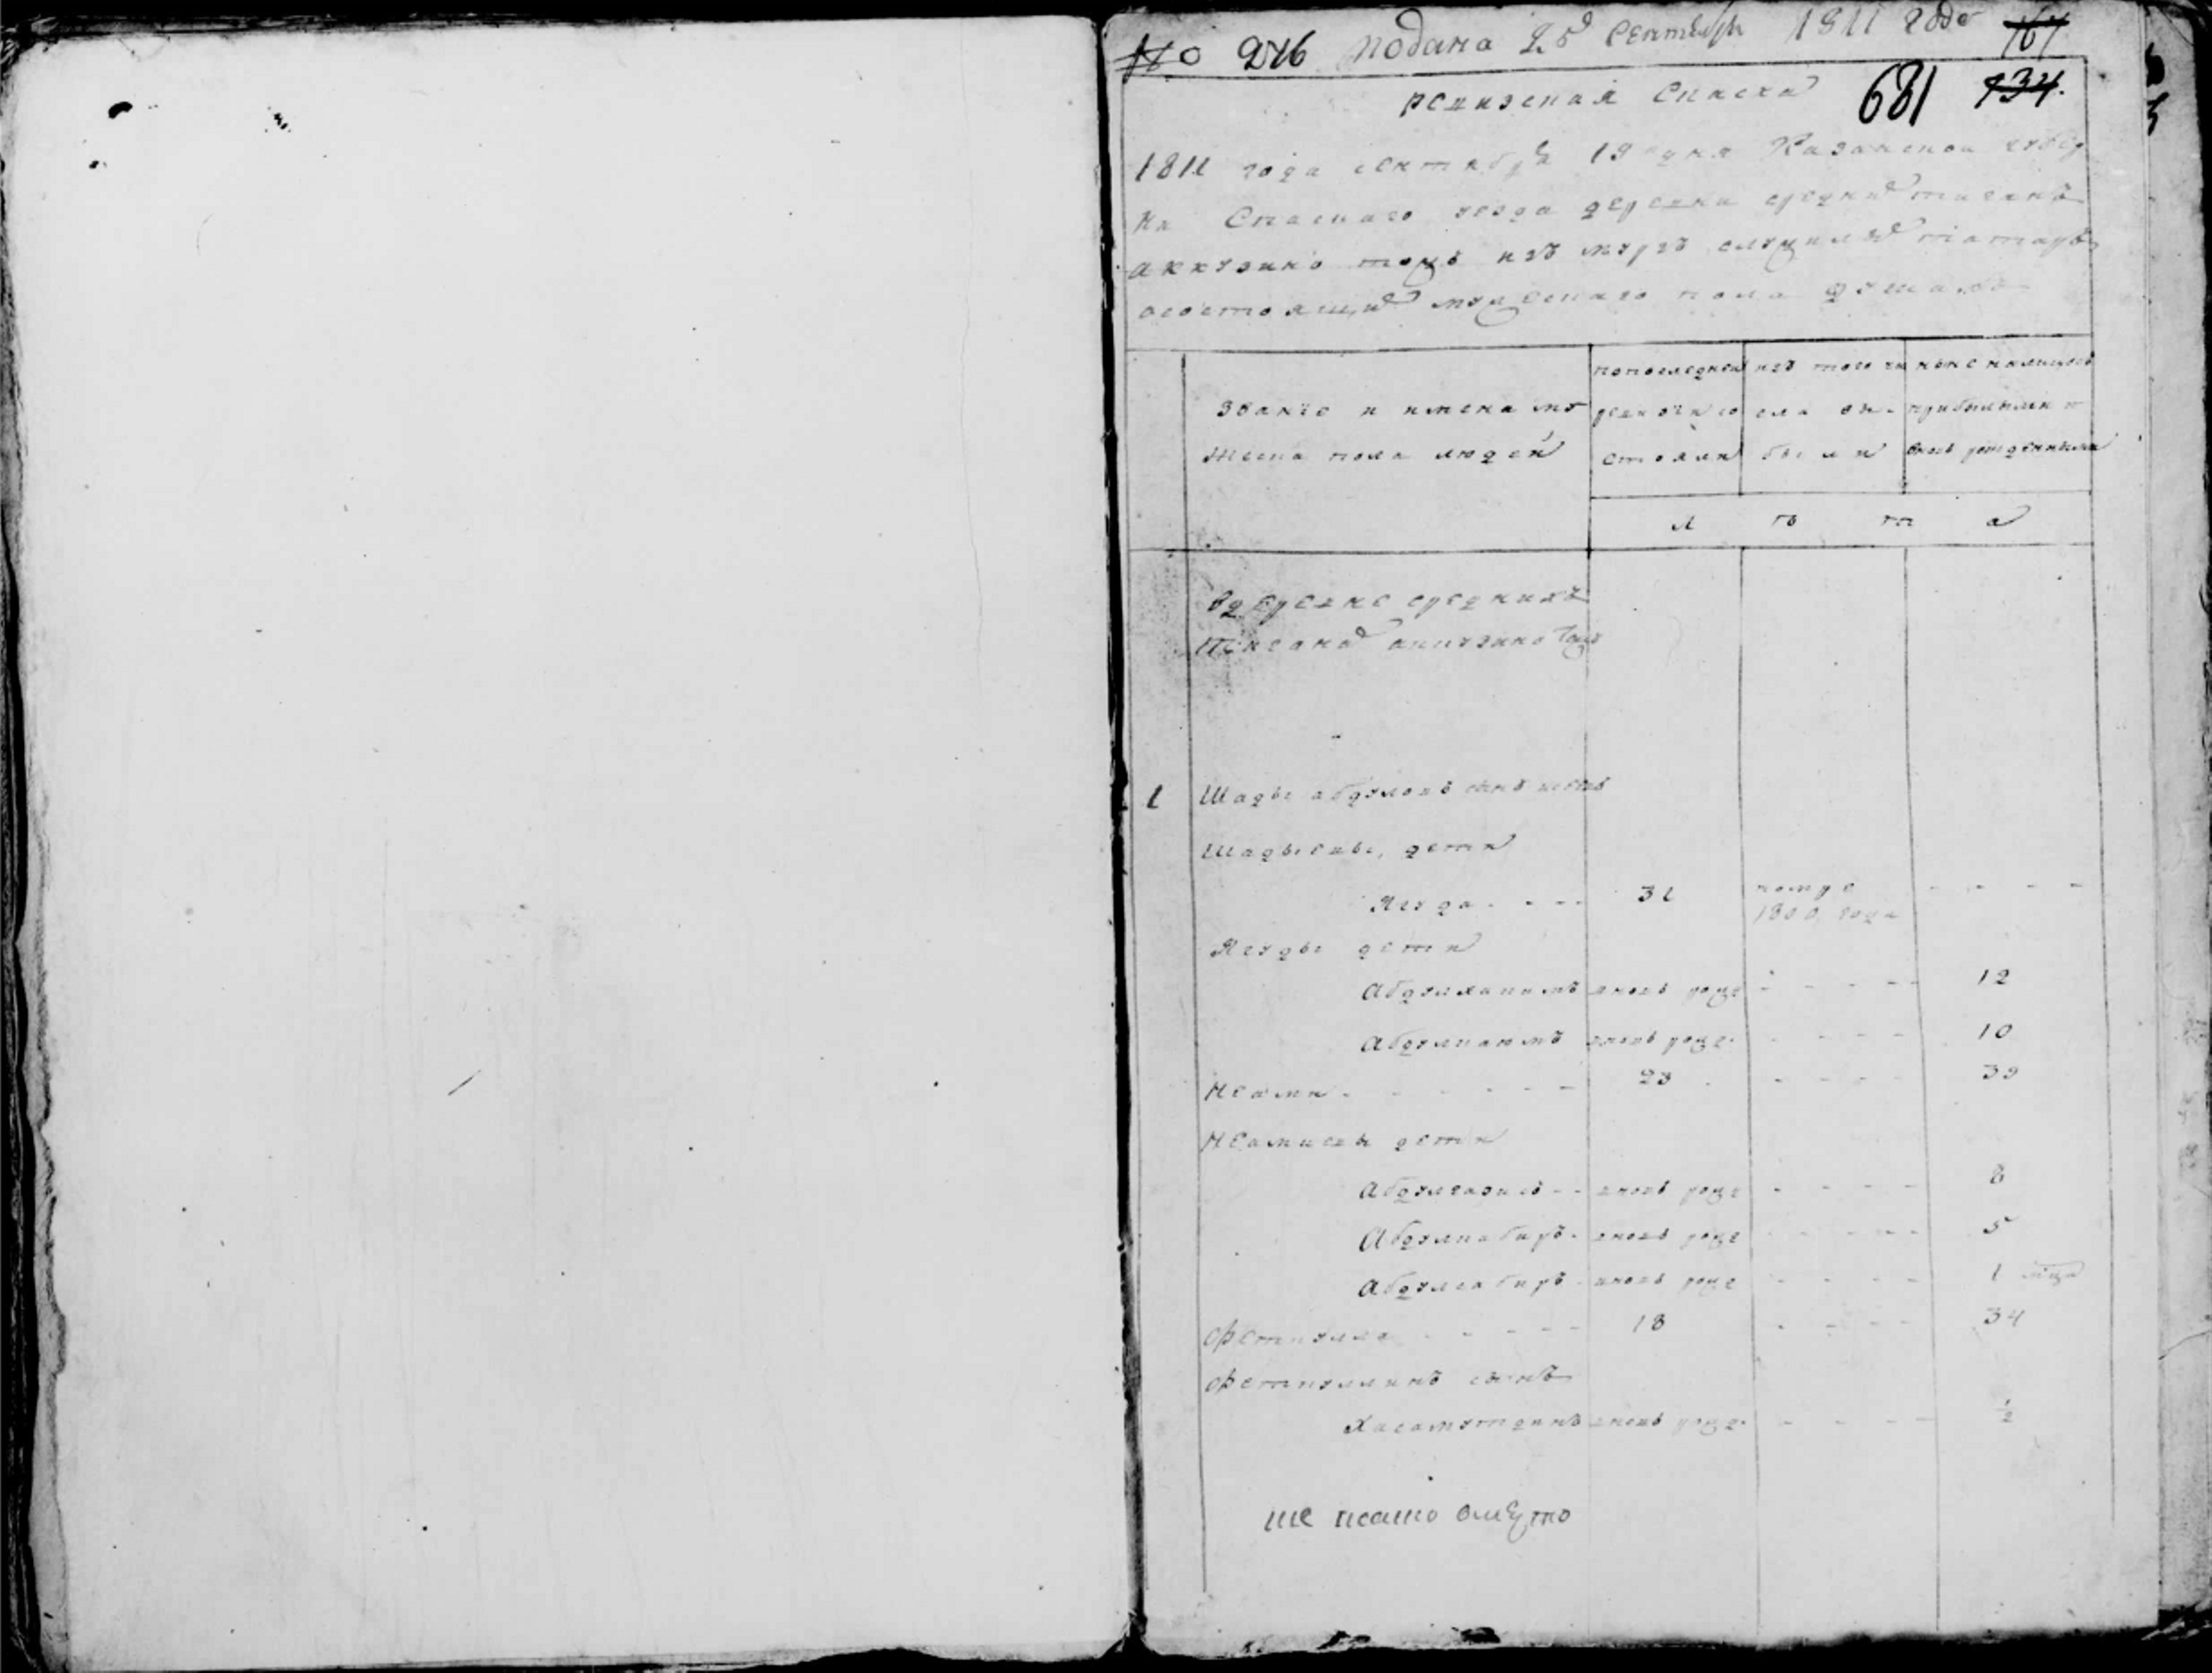 № 276 подана 25 Сентября 1811 года 167
681 134.
ревизская Сказка
1811 года сентября 19 дня Казанской губер
ни Спаскаго уезда деревни средних тиганъ
аккузино тожъ изъ мурзъ служилыхъ татаръ
осостоящихъ мужескаго пола душахъ
Званіе и имена му
жеска пола людей
попоследней ревизіи со стояли
изъ того чи сла вы были
ныне налицосъ прибылыми и вновь рожденными
л ѣ т а
вдеревне среднихъ
тигана аккузино тожъ
1 Шады абдуловъ сынъ
Шадыевы дети
Ягуда 31 помре 1800 года
Ягуды дети
Абдулхакимъ вновь рожд 12
Абдулкаюмъ вновь рожд. 10
Исами 23 39
Исамиевы дети
Абдулгазисъ вновь рожд 8
Абдулкабиръ вновь рожд 5
Абдулсабиръ вновь рожд 1
Фетхулла 18 34
Фетхуллинъ сынъ
Хасамутдинъ вновь рожд. 1/2